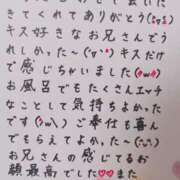 きてくれてありがとう
キス好きなお兄さんでう
れしかったー(˘ω˘*)キスだけ
で感じちゃいました(๑ω๑)
お風呂でもたくさんエッチ
なことして気持ちよかった
です(>ω<)ご奉仕も喜ん
でもらえてよかったー(˘ω˘)
お兄さんの感じてるお
顔最高でした♥♥また